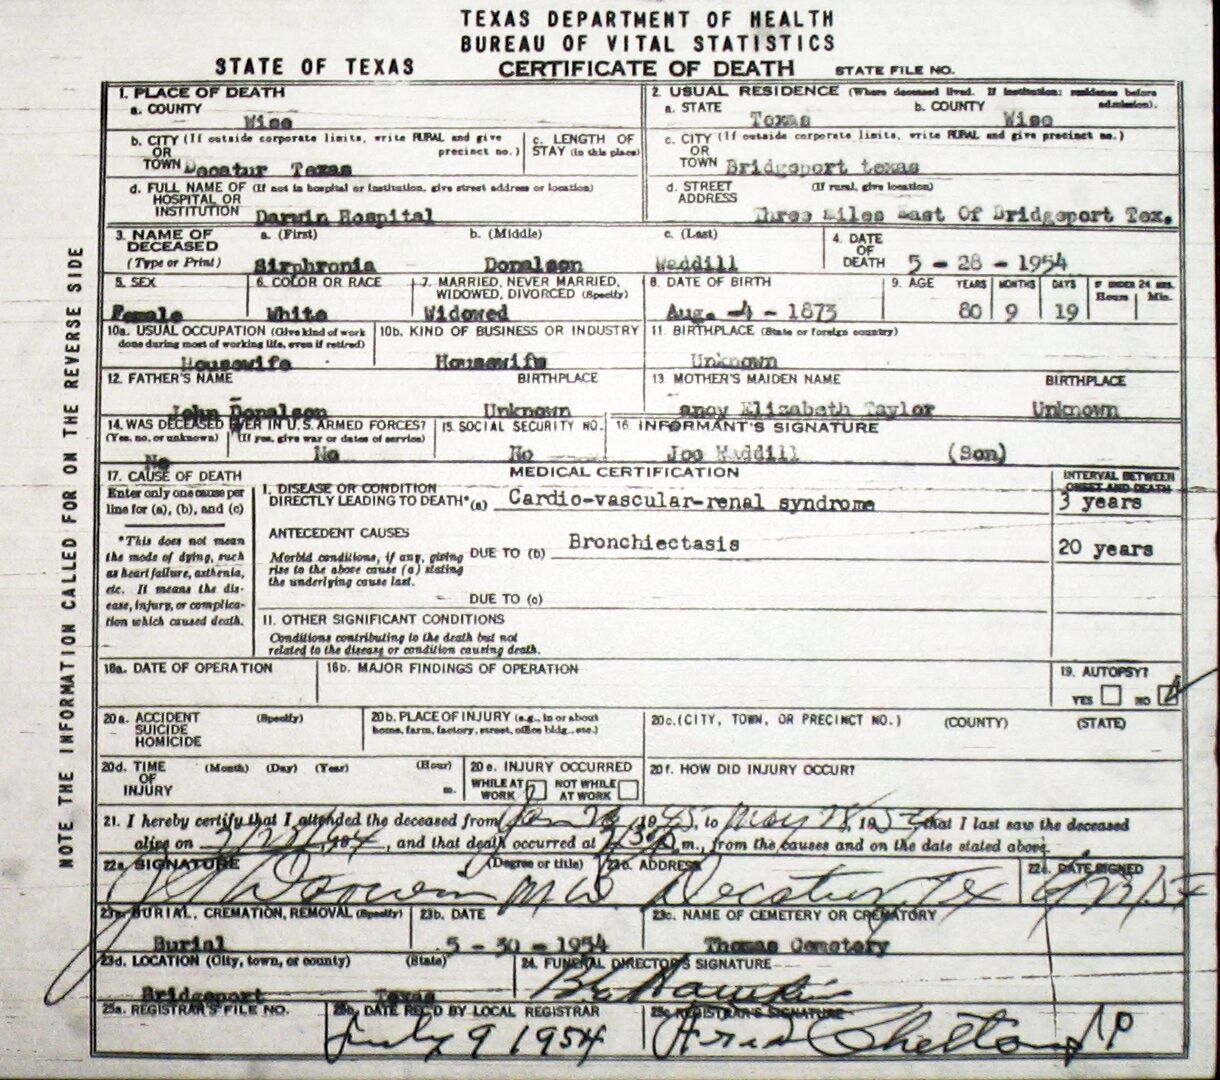 TEXAS DEPARTMENT OF HEALTH
BUREAU OF VITAL STATISTICS
STATE OF TEXAS CERTIFICATE OF DEATH STATE FILE NO.
NOTE THE INFORMATION CALLED FOR ON THE REVERSE SIDE
1. PLACE OF DEATH
a. COUNTY
Wise
2. USUAL RESIDENCE (Where deceased lived. If institution: residence before admission).
a. STATE b. COUNTY
Texas Wise
b. CITY (If outside corporate limits, write RURAL and give
OR precinct no.)
TOWN Decatur Texas
c. LENGTH OF
STAY (in this place)
c. CITY (If outside corporate limits, write RURAL and give precinct no.)
OR
TOWN Bridgeport texas
d. FULL NAME OF (If not in hospital or institution, give street address or location)
HOSPITAL OR
INSTITUTION Darwin Hospital
d. STREET (If rural, give location)
ADDRESS
Three Miles East Of Bridgeport Tex.
3. NAME OF a. (First) b. (Middle) c. (Last)
DECEASED
(Type or Print) Sirphronia Donalson Waddill
4. DATE
OF
DEATH 5 - 28 - 1954
5. SEX
Female
6. COLOR OR RACE
White
7. MARRIED, NEVER MARRIED,
WIDOWED, DIVORCED (Specify)
Widowed
8. DATE OF BIRTH
Aug. -4 - 1873
9. AGE YEARS MONTHS DAYS IF UNDER 24 HRS.
Hours Min.
80 9 19
10a. USUAL OCCUPATION (Give kind of work
done during most of working life, even if retired)
Housewife
10b. KIND OF BUSINESS OR INDUSTRY
Housewife
11. BIRTHPLACE (State or foreign country)
Unknown
12. FATHER'S NAME BIRTHPLACE
John Donalson Unknown
13. MOTHER'S MAIDEN NAME BIRTHPLACE
ancy Elizabeth Taylor Unknown
14. WAS DECEASED EVER IN U.S. ARMED FORCES?
(Yes, no, or unknown) (If yes, give war or dates of service)
No No
15. SOCIAL SECURITY NO.
No
16. INFORMANT'S SIGNATURE
Joe Waddill (Son)
MEDICAL CERTIFICATION
17. CAUSE OF DEATH
Enter only one cause per
line for (a), (b), and (c)
*This does not mean
the mode of dying, such
as heart failure, asthenia,
etc. It means the dis-
ease, injury, or complica-
tion which caused death.
I. DISEASE OR CONDITION
DIRECTLY LEADING TO DEATH*(a) Cardio-vascular-renal syndrome
INTERVAL BETWEEN
ONSET AND DEATH
3 years
ANTECEDENT CAUSES
Morbid conditions, if any, giving
rise to the above cause (a) stating
the underlying cause last.
DUE TO (b) Bronchiectasis
20 years
DUE TO (c)
II. OTHER SIGNIFICANT CONDITIONS
Conditions contributing to the death but not
related to the disease or condition causing death.
18a. DATE OF OPERATION
18b. MAJOR FINDINGS OF OPERATION
19. AUTOPSY?
YES NO
20a. ACCIDENT (Specify)
SUICIDE
HOMICIDE
20b. PLACE OF INJURY (e.g., in or about
home, farm, factory, street, office bldg., etc.)
20c. (CITY, TOWN, OR PRECINCT NO.) (COUNTY) (STATE)
20d. TIME (Month) (Day) (Year) (Hour)
OF
INJURY m.
20e. INJURY OCCURRED
WHILE AT WORK NOT WHILE AT WORK
20f. HOW DID INJURY OCCUR?
21. I hereby certify that I attended the deceased from Jan 1945, to May 28, 1954 that I last saw the deceased
alive on, and that death occurred at m., from the causes and on the date stated above.
22a. SIGNATURE (Degree or title)
Darwin M.D.
22b. ADDRESS
Decatur, Tex
22c. DATE SIGNED
23a. BURIAL, CREMATION, REMOVAL (Specify)
Burial
23b. DATE
5 - 30 - 1954
23c. NAME OF CEMETERY OR CREMATORY
Thomas Cemetery
23d. LOCATION (City, town, or county) (State)
Bridgeport Texas
24. FUNERAL DIRECTOR'S SIGNATURE
Hawkins
25a. REGISTRAR'S FILE NO.
25b. DATE REC'D BY LOCAL REGISTRAR
July 9 1954
25c. REGISTRAR'S SIGNATURE
Fred Shelton JP